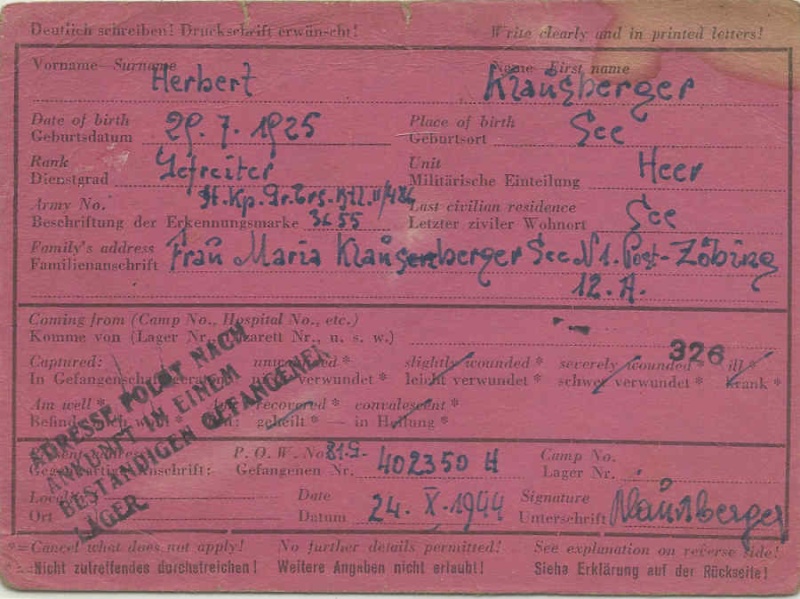 Deutlich schreiben! Druckschrift erwünscht! Write clearly and in printed letters!
Vorname — Surname Name First name
Herbert Klausberger
Date of birth Place of birth
Geburtsdatum 29.7.1925 Geburtsort See
Rank Unit
Dienstgrad Gefreiter Militärische Einteilung Heer
Army No. Last civilian residence
Beschriftung der Erkennungsmarke 3655 Letzter ziviler Wohnort See
Family's address
Familienanschrift Frau Maria See N1. Post-Zöbing
12.A.
Coming from (Camp No., Hospital No., etc.)
Komme von (Lager Nr., Lazarett Nr., u. s. w.)
326
Captured: unwounded * slightly wounded * severely wounded * ill *
In Gefangenschaft geraten: unverwundet * leicht verwundet * schwer verwundet * krank *
Am well * recovered * convalescent *
geheilt * — in Heilung *
P.O.W. No. 81G- Camp No.
Gegenwärtige Anschrift: Gefangenen Nr. 402350 H Lager Nr.
Date Signature
Ort Datum 24.X.1944 Unterschrift Klausberger
ADRESSE FOLGT NACH
ANKUNFT IN EINEM
BESTÄNDIGEN GEFANGENEN
LAGER
*=Cancel what does not apply! No further details permitted! See explanation on reverse side!
*=Nicht zutreffendes durchstreichen! Weitere Angaben nicht erlaubt! Siehe Erklärung auf der Rückseite!